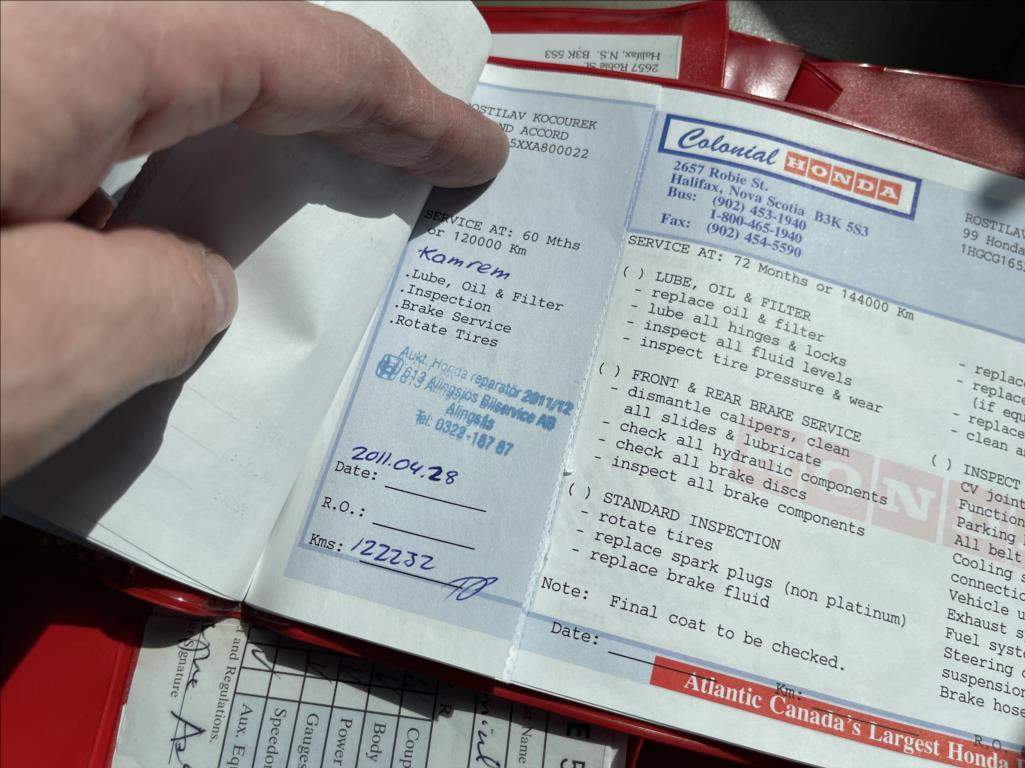 2657 Robie St.
Halifax, N.S. B3K 5S3
ROSTILAV KOCOUREK
ND ACCORD
5XXA800022
SERVICE AT: 60 Mths
or 120000 Km
Kamrem
.Lube, Oil & Filter
.Inspection
.Brake Service
.Rotate Tires
Aukt. Honda reparatör 2011/12
Alingsås Bilservice AB
Alingsås
Tel: 0322-187 87
2011.04.28
Date:
R.O.:
Kms: 122232
Colonial HONDA
2657 Robie St.
Halifax, Nova Scotia B3K 5S3
Bus: (902) 453-1940
1-800-465-1940
Fax: (902) 454-5590
SERVICE AT: 72 Months or 144000 Km
( ) LUBE, OIL & FILTER
- replace oil & filter
- lube all hinges & locks
- inspect all fluid levels
- inspect tire pressure & wear
( ) FRONT & REAR BRAKE SERVICE
- dismantle calipers, clean
all slides & lubricate
- check all hydraulic components
- check all brake discs
- inspect all brake components
( ) STANDARD INSPECTION
- rotate tires
- replace spark plugs (non platinum)
- replace brake fluid
Note: Final coat to be checked.
Date: Km:
Atlantic Canada's Largest Honda
ROSTILAV
99 Honda
1HGCG165
- replac
- replace
(if equ
- replace
- clean an
( ) INSPECT
CV joint
Function
Parking
All belt
Cooling s
connectio
Vehicle u
Exhaust s
Fuel syst
Steering
suspension
Brake hose
R.O.
and Regulations.
Signature
Aux. Eq
Speedon
Gauges
Power
Body
Coup
Name